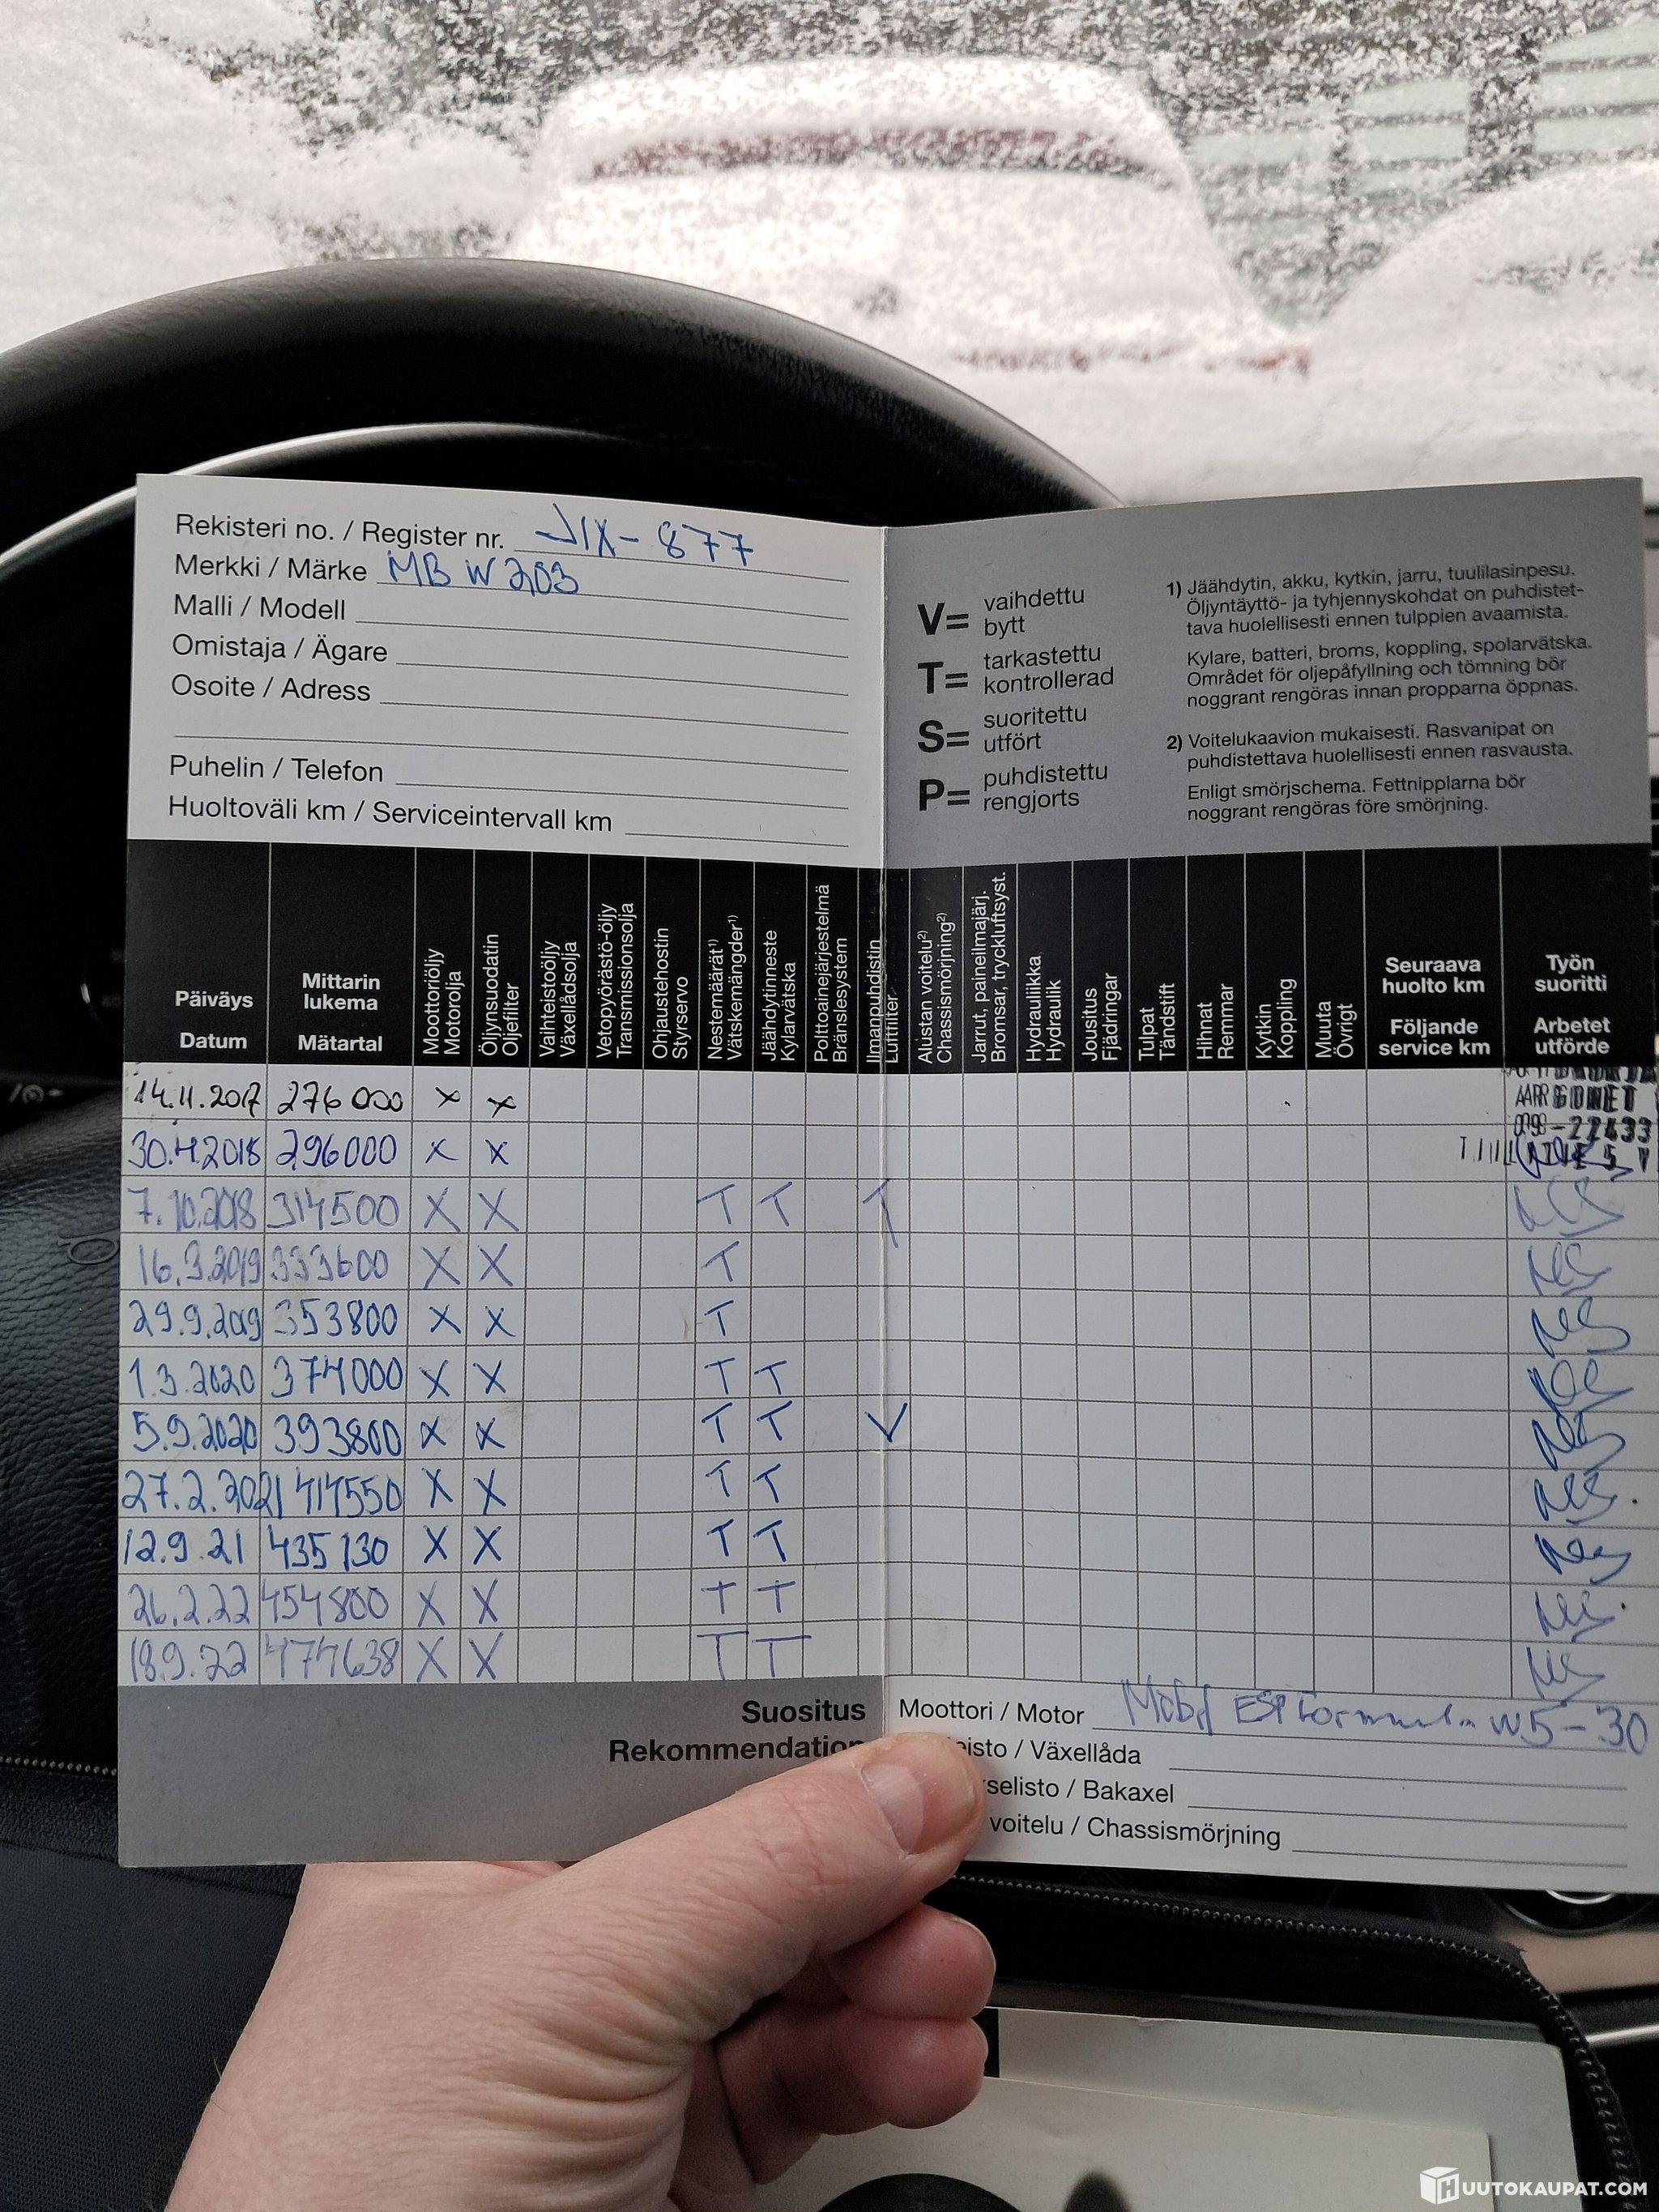 Rekisteri no. / Register nr. JIX-877
Merkki / Märke MB W203
Malli / Modell
Omistaja / Ägare
Osoite / Adress
Puhelin / Telefon
Huoltoväli km / Serviceintervall km
V= vaihdettu
bytt
T= tarkastettu
kontrollerad
S= suoritettu
utfört
P= puhdistettu
rengjorts
1) Jäähdytin, akku, kytkin, jarru, tuulilasinpesu.
Öljyntäyttö- ja tyhjennyskohdat on puhdistet-
tava huolellisesti ennen tulppien avaamista.
Kylare, batteri, broms, koppling, spolarvätska.
Området för oljepåfyllning och tömning bör
noggrant rengöras innan propparna öppnas.
2) Voitelukaavion mukaisesti. Rasvanipat on
puhdistettava huolellisesti ennen rasvausta.
Enligt smörjschema. Fettnipplarna bör
noggrant rengöras före smörjning.
Päiväys
Datum
Mittarin
lukema
Mätartal
Moottoriöljy
Motorolja
Öljynsuodatin
Oljefilter
Vaihteistoöljy
Växellådsolja
Vetopyörästö-öljy
Transmissionsolja
Ohjaustehostin
Styrservo
Nestemäärät1)
Vätskemängder1)
Jäähdytinneste
Kylarvätska
Polttoainejärjestelmä
Bränslesystem
Ilmanpuhdistin
Luftfilter
Alustan voitelu2)
Chassismörjning2)
Jarrut, paineilmajärj.
Bromsar, tryckluftsyst.
Hydrauliikka
Hydraulik
Jousitus
Fjädringar
Tulpat
Tändstift
Hihnat
Remmar
Kytkin
Koppling
Muuta
Övrigt
Seuraava
huolto km
Följande
service km
Työn
suoritti
Arbetet
utförde
14.11.2017 276000 x x
30.4.2018 296000 x x
7.10.2018 314500 X X T T T
16.3.2019 333600 X X T
29.9.2019 353800 X X T
1.3.2020 374000 X X T T
5.9.2020 393800 X X T T V
27.2.2021 414550 X X T T
12.9.21 435130 X X T T
26.2.22 454800 X X T T
18.9.22 474638 X X T T
Suositus
Rekommendation
Moottori / Motor Mobil ESP Formula W5-30
isto / Växellåda
selisto / Bakaxel
voitelu / Chassismörjning
HUUTOKAUPAT.COM